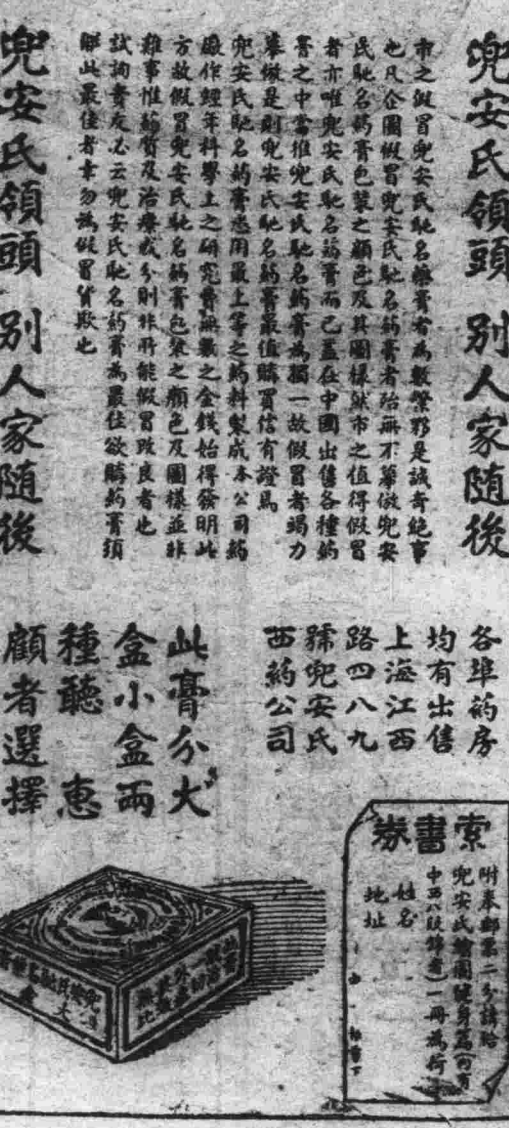 兜安氏領頭 別人家隨後
市之假冒兜安氏馳名藥膏者為數繁夥是誠奇絕事
也凡企圖假冒兜安氏馳名葯膏者殆無不摹倣兜安
氏馳名葯膏包裝之顏色及其圖樣然市之值得假冒
者亦唯兜安氏馳名葯膏而已蓋在中國出售各種葯
膏之中當推兜安氏馳名葯膏為獨一故假冒者竭力
摹倣是則兜安氏馳名葯膏最值購買信有證焉
兜安氏馳名葯膏悉用最上等之葯料製成本公司葯
廠作經年科學上之研究費無數之金錢始得發明此
方故假冒兜安氏馳名葯膏包裝之顏色及圖樣並非
難事惟葯質及治療成分則非所能假冒改良者也
試詢貴友必云兜安氏馳名葯膏為最佳欲購葯膏須
購此最佳者幸勿為假冒貨欺也
兜安氏領頭 別人家隨後
各埠葯房
均有出售
上海江西
路四八九
號兜安氏
西葯公司
此膏分大
盒小盒兩
種聽 惠
顧者選擇
索書券
附奉郵票二分請貽
兜安氏
一冊為荷
姓名
地址